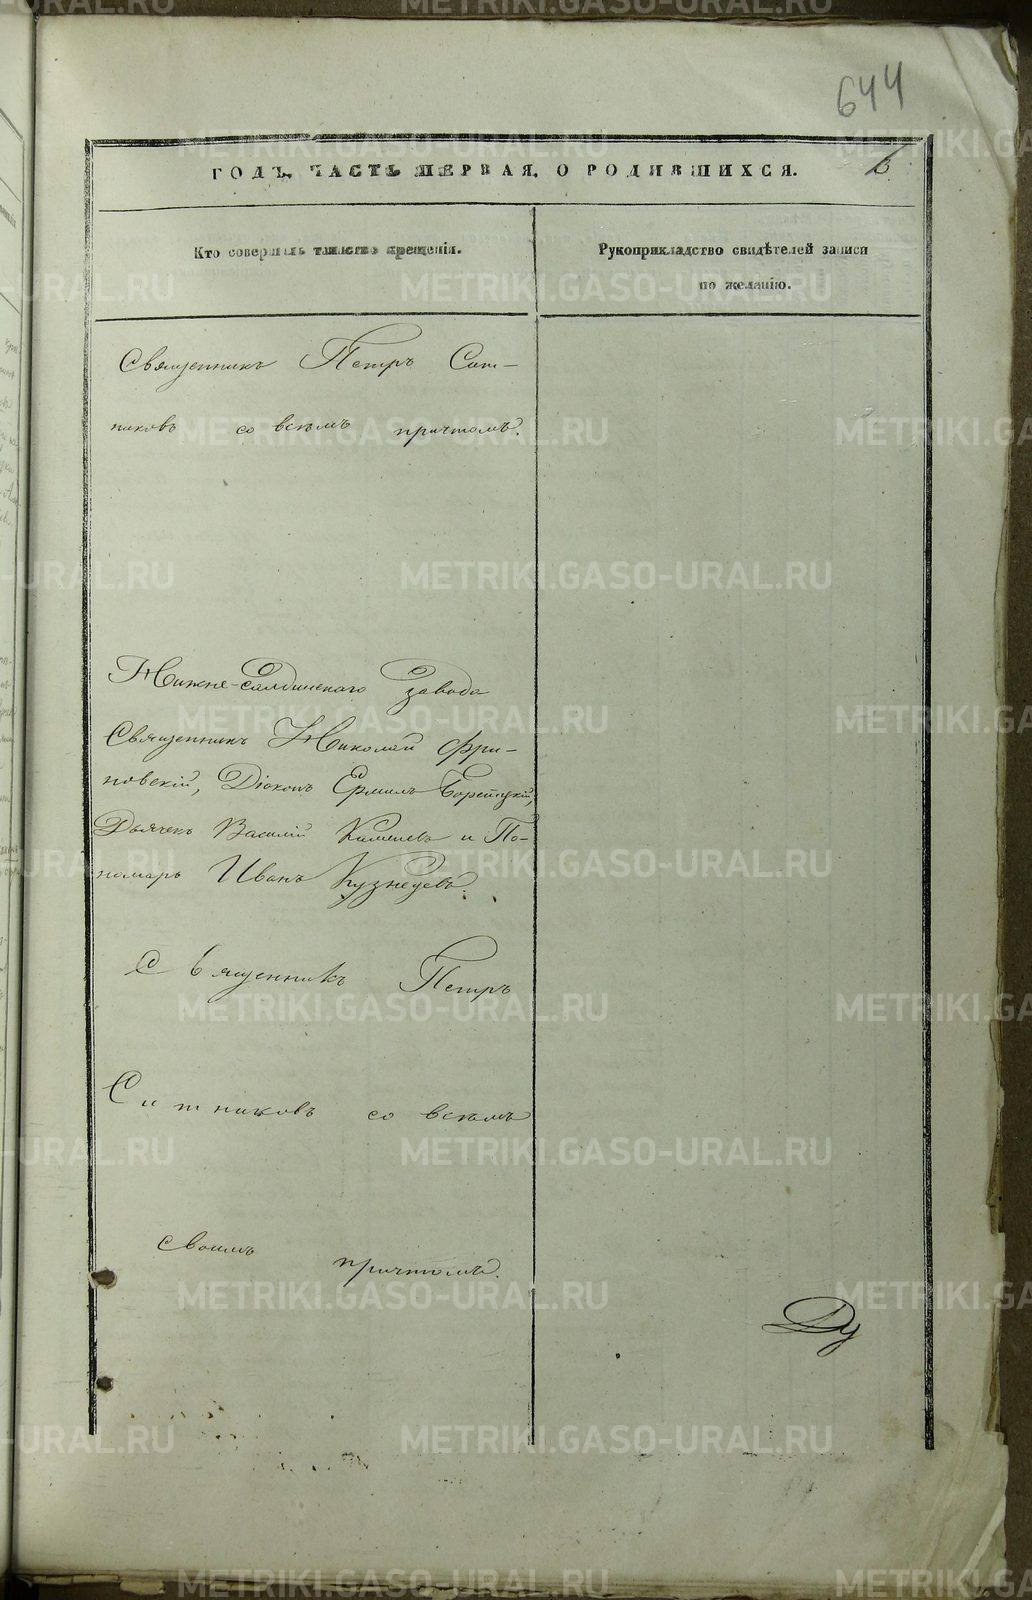 644
ГОДЪ. ЧАСТЬ ПЕРВАЯ. О РОДИВШИХСЯ.
Кто совершалъ таинство крещенія.
Рукоприкладство свидѣтелей записи
по желанію.
Священникъ Петръ Сит-
никовъ со всѣмъ причтомъ.
Нижне-салдинскаго завода
Священникъ Николай
Діаконъ Ермилъ
Дьячекъ Василій и По-
номарь Иванъ Кузнецовъ.
Священникъ Петръ
Ситниковъ со всѣмъ
своимъ причтомъ.
Ду
METRIKI.GASO-URAL.RU